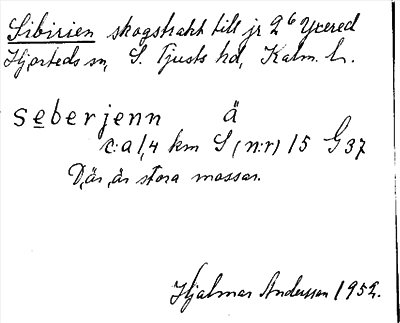 Sibirien skogstrakt till jr 2⁶ Yxered
Hjorteds sn, S. Tjusts hd, Kalm. l.
seberjenn ä
c:a 1,4 km S (n:r) 15 G37
D,är, är stora mossar.
Hjalmar Andersson 1952.